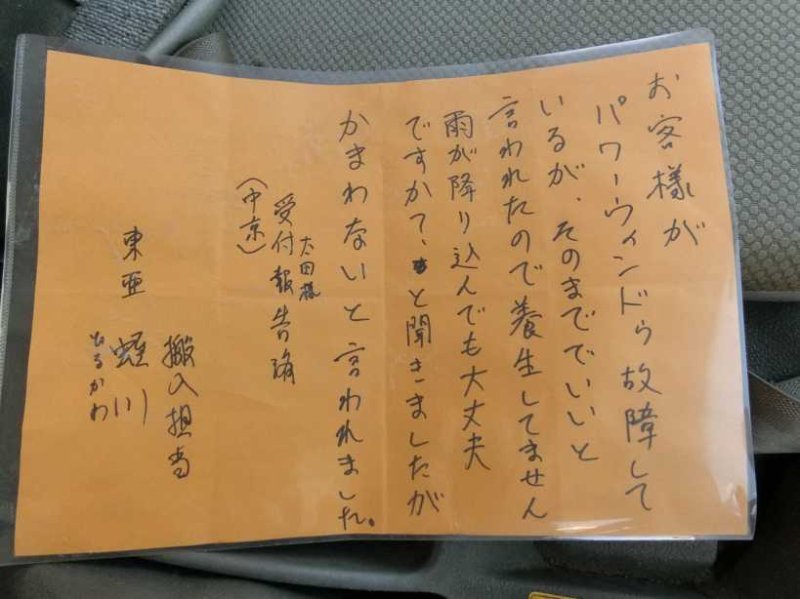 お客様が
パワーウィンドゥ故障して
いるが、そのまででいいと
言われたので養生してません
雨が降り込んでも大丈夫
ですかて、と聞きましたが
かまわないと言われました。
太田様
受付報告済
(中京)
搬入担当
東亜 蛭川
ひるかわ